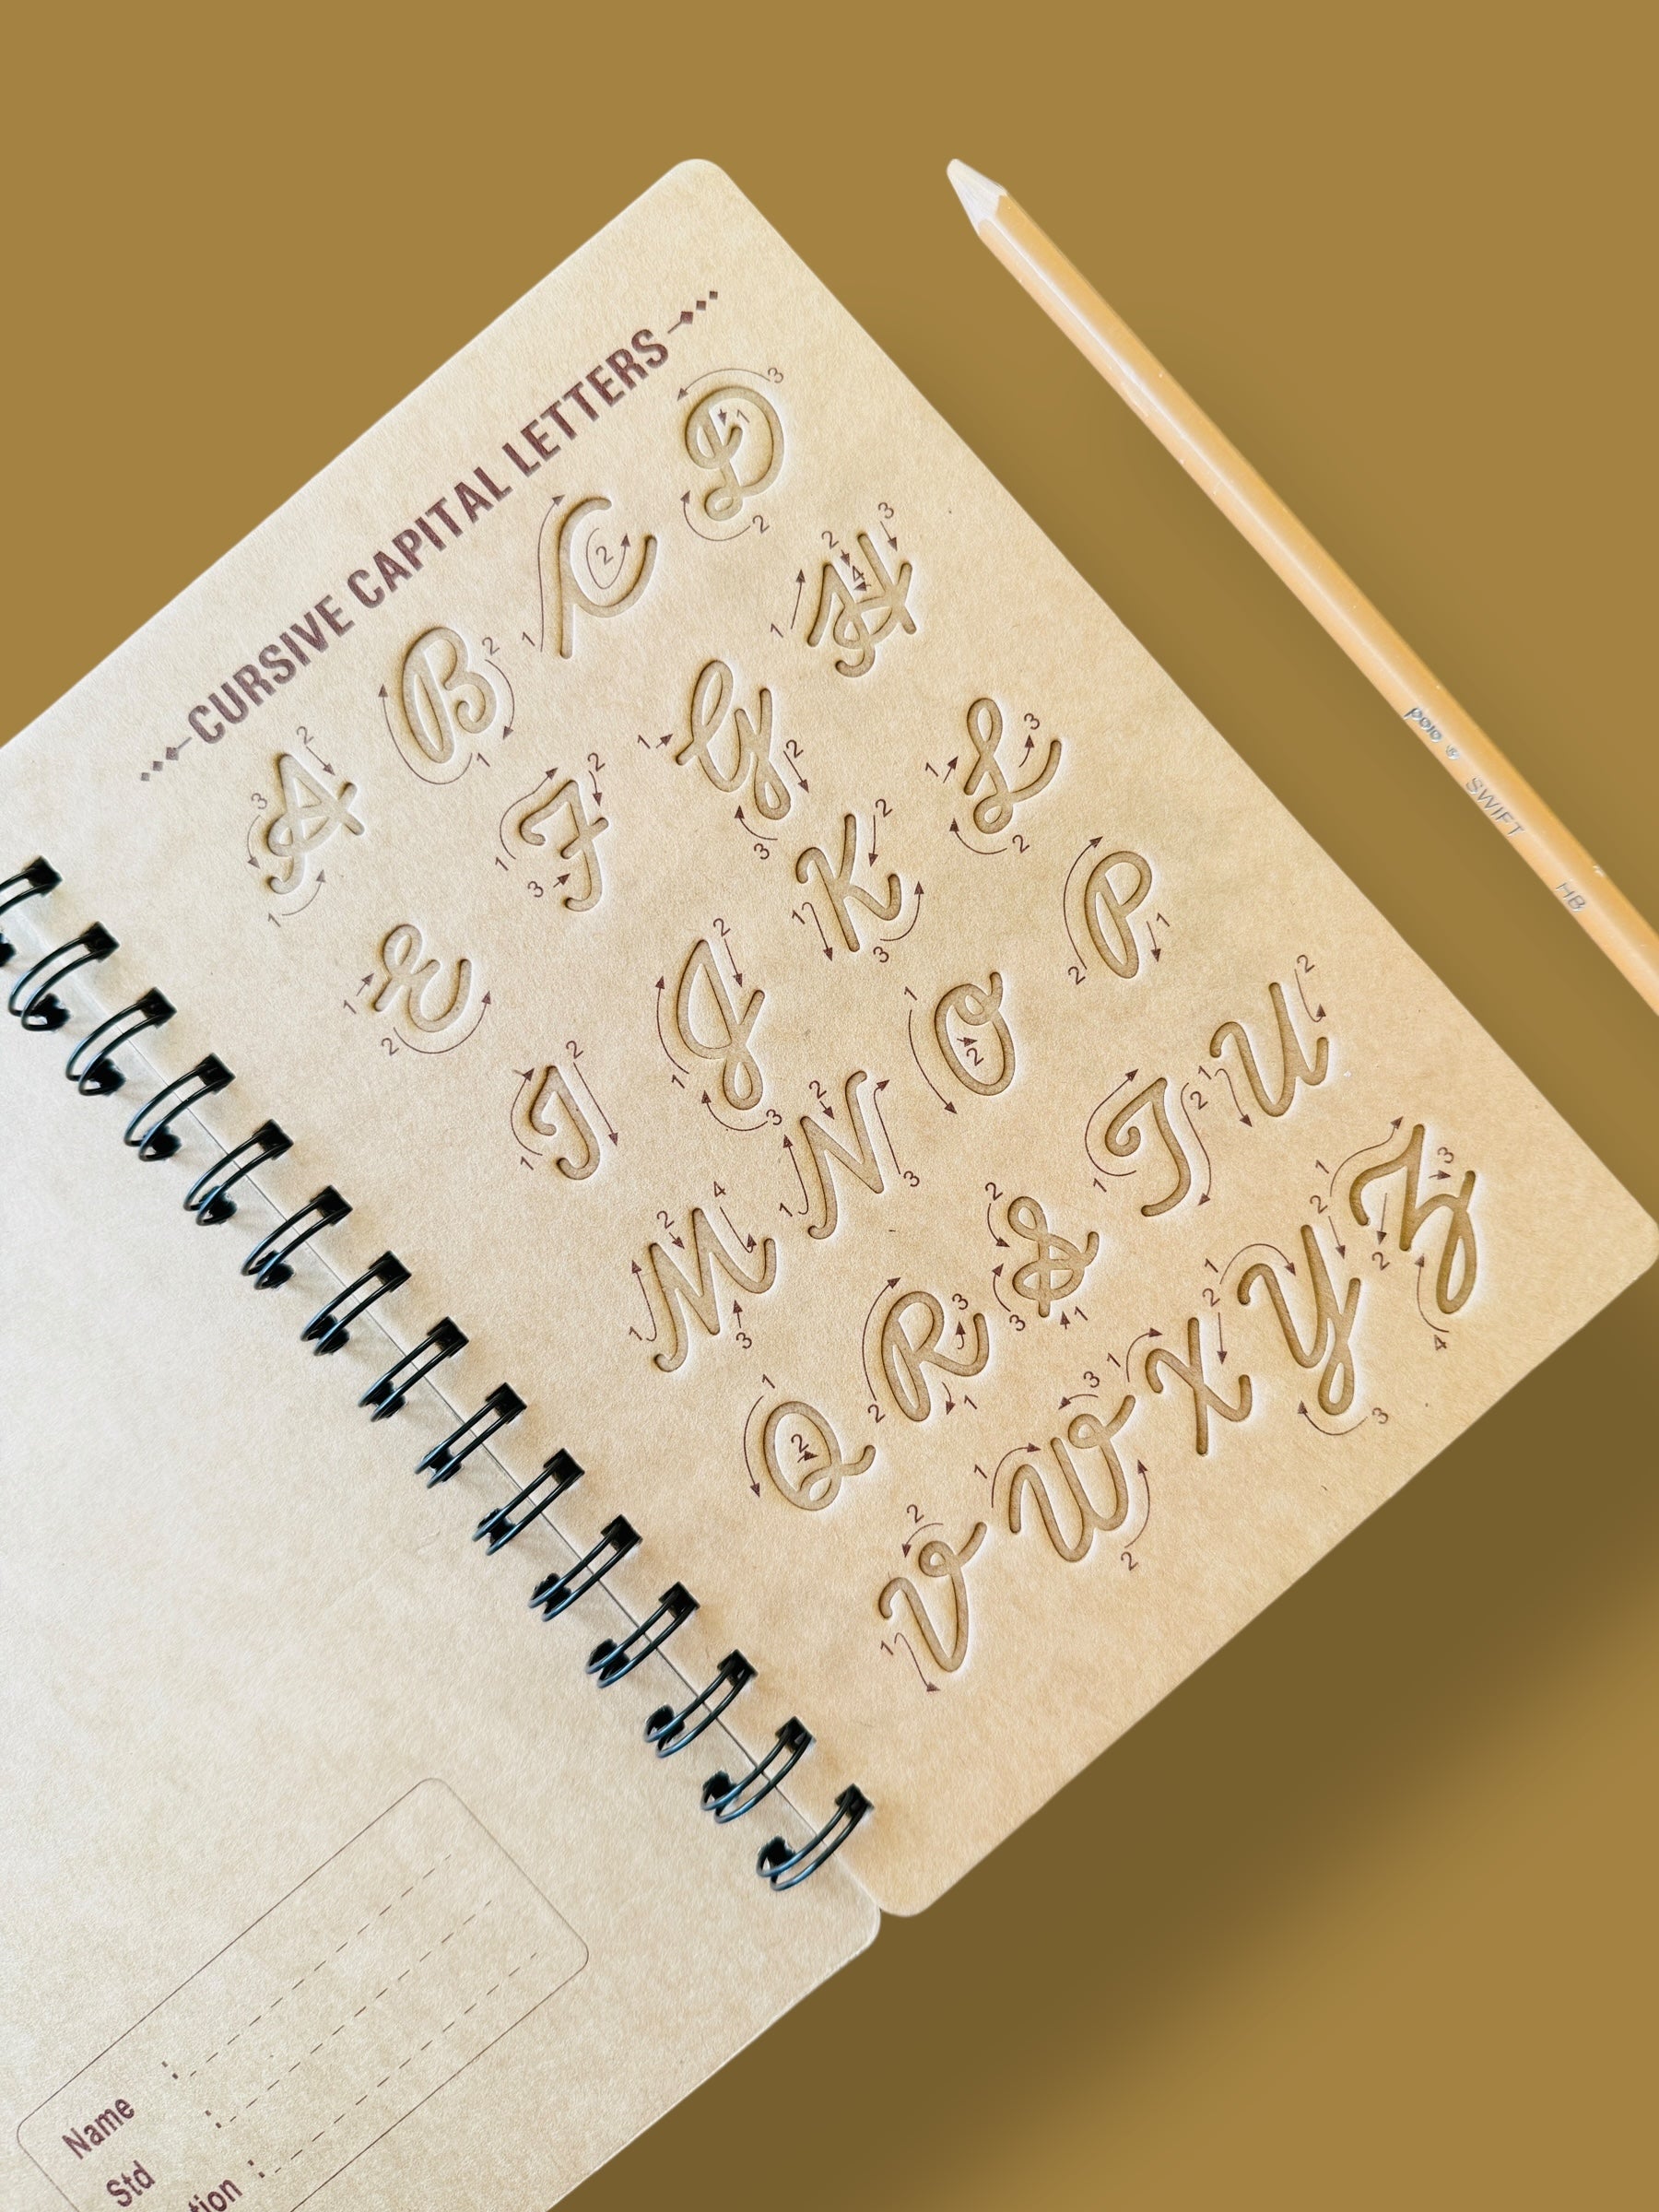 CURSIVE CAPITAL LETTERS
A B C D
E F G H
I J K L
M N O P
Q R S T U
V W X Y Z
Name :
Std :
tion :
polo SWIFT HB